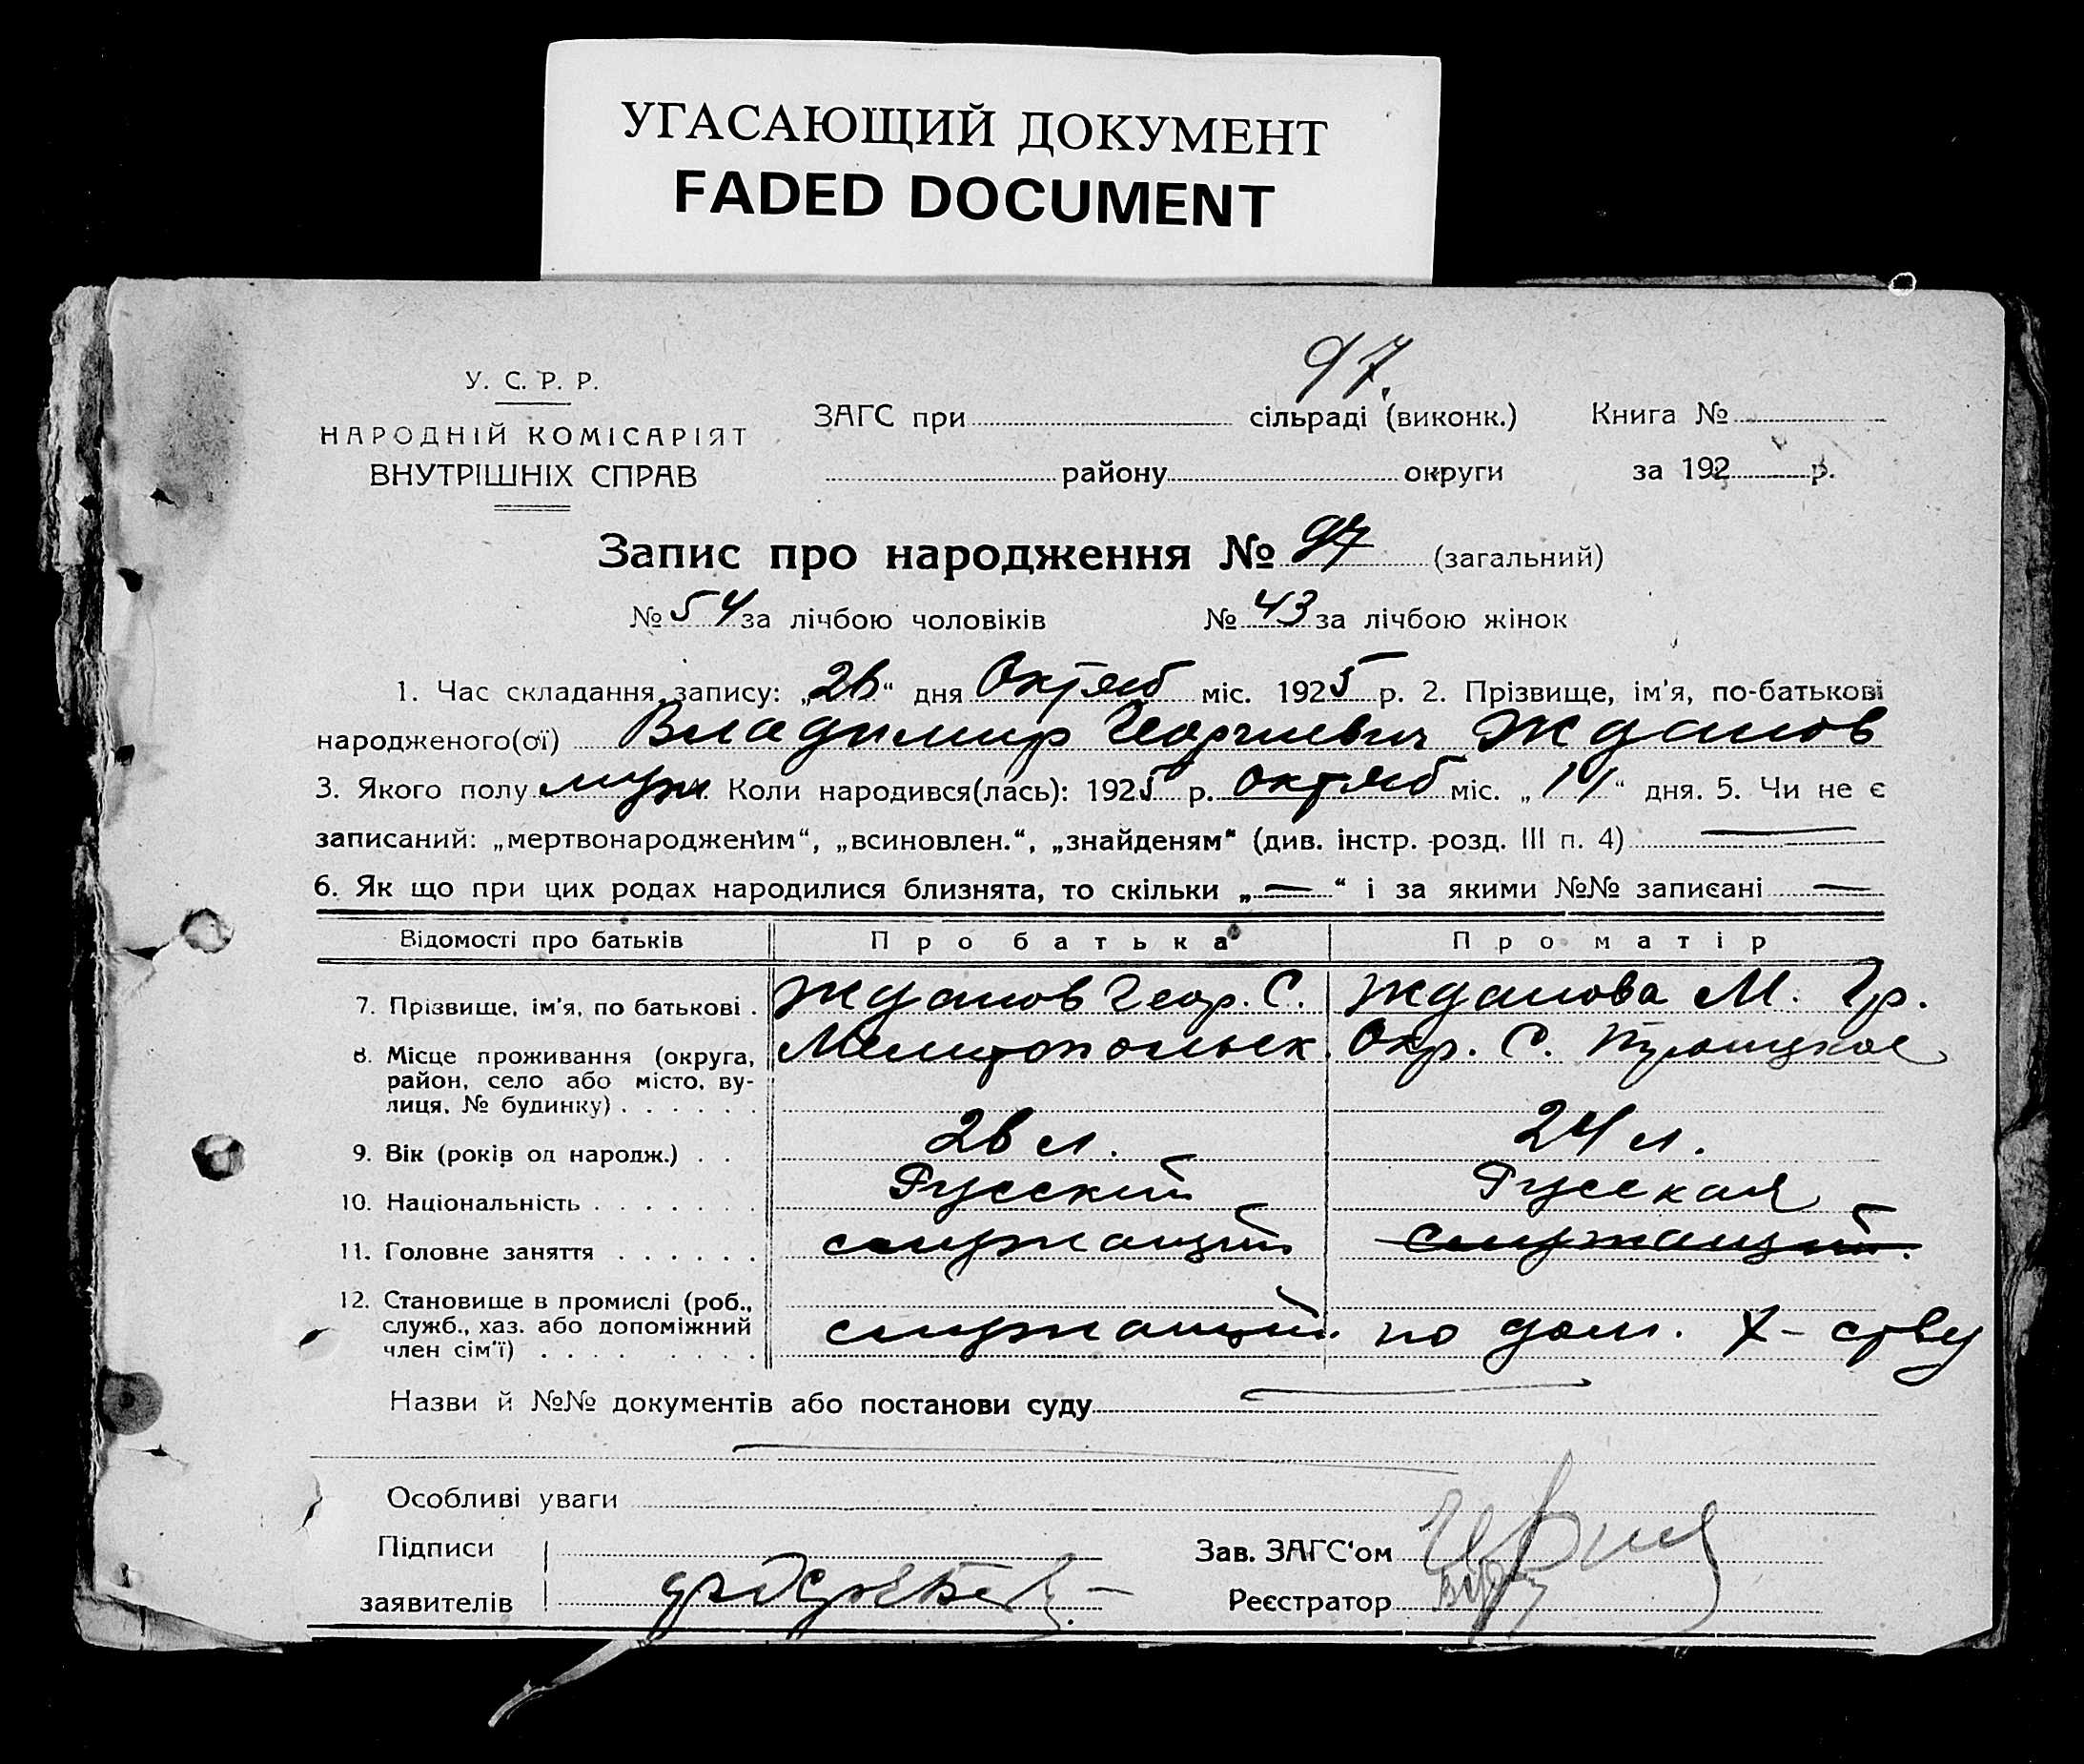 УГАСАЮЩИЙ ДОКУМЕНТ
FADED DOCUMENT
97.
У. С. Р. Р.
НАРОДНІЙ КОМІСАРІЯТ
ВНУТРІШНІХ СПРАВ
ЗАГС при сільраді (виконк.) Книга №
району округи за 192 р.
Запис про народження № 97 (загальний)
№ 54 за лічбою чоловіків № 43 за лічбою жінок
1. Час складання запису: „ “ дня Октяб міс. 1925 р. 2. Прізвище, ім'я, по-батькові
народженого(ої) Владимир Георгиевич Жданов
3. Якого полу муж. Коли народився(лась): 1925 р. октяб міс. „14“ дня. 5. Чи не є
записаний: „мертвонародженим“, „всиновлен.“, „знайденям“ (див. інстр. розд. III п. 4) —
6. Як що при цих родах народилися близнята, то скільки „—“ і за якими №№ записані —
Відомості про батьків Про батька Про матір
7. Прізвище, ім'я, по батькові . Жданов Геор. С. Жданова М. Гр.
8. Місце проживання (округа, Мелитопольск. Окр. С. Троицкое
район, село або місто, ву-
лиця, № будинку) . . . . . .
9. Вік (років од народж.) . . л. 24 л.
10. Національність . . . . . . . Русский Русская
11. Головне заняття . . . . . . служащий служащий.
12. Становище в промислі (роб.,
служб., хаз. або допоміжний служащий. по дом. х-ству
член сім'ї) . . . . . . . .
Назви й №№ документів або постанови суду —
Особливі уваги
Підписи Зав. ЗАГС'ом
заявителів Реєстратор